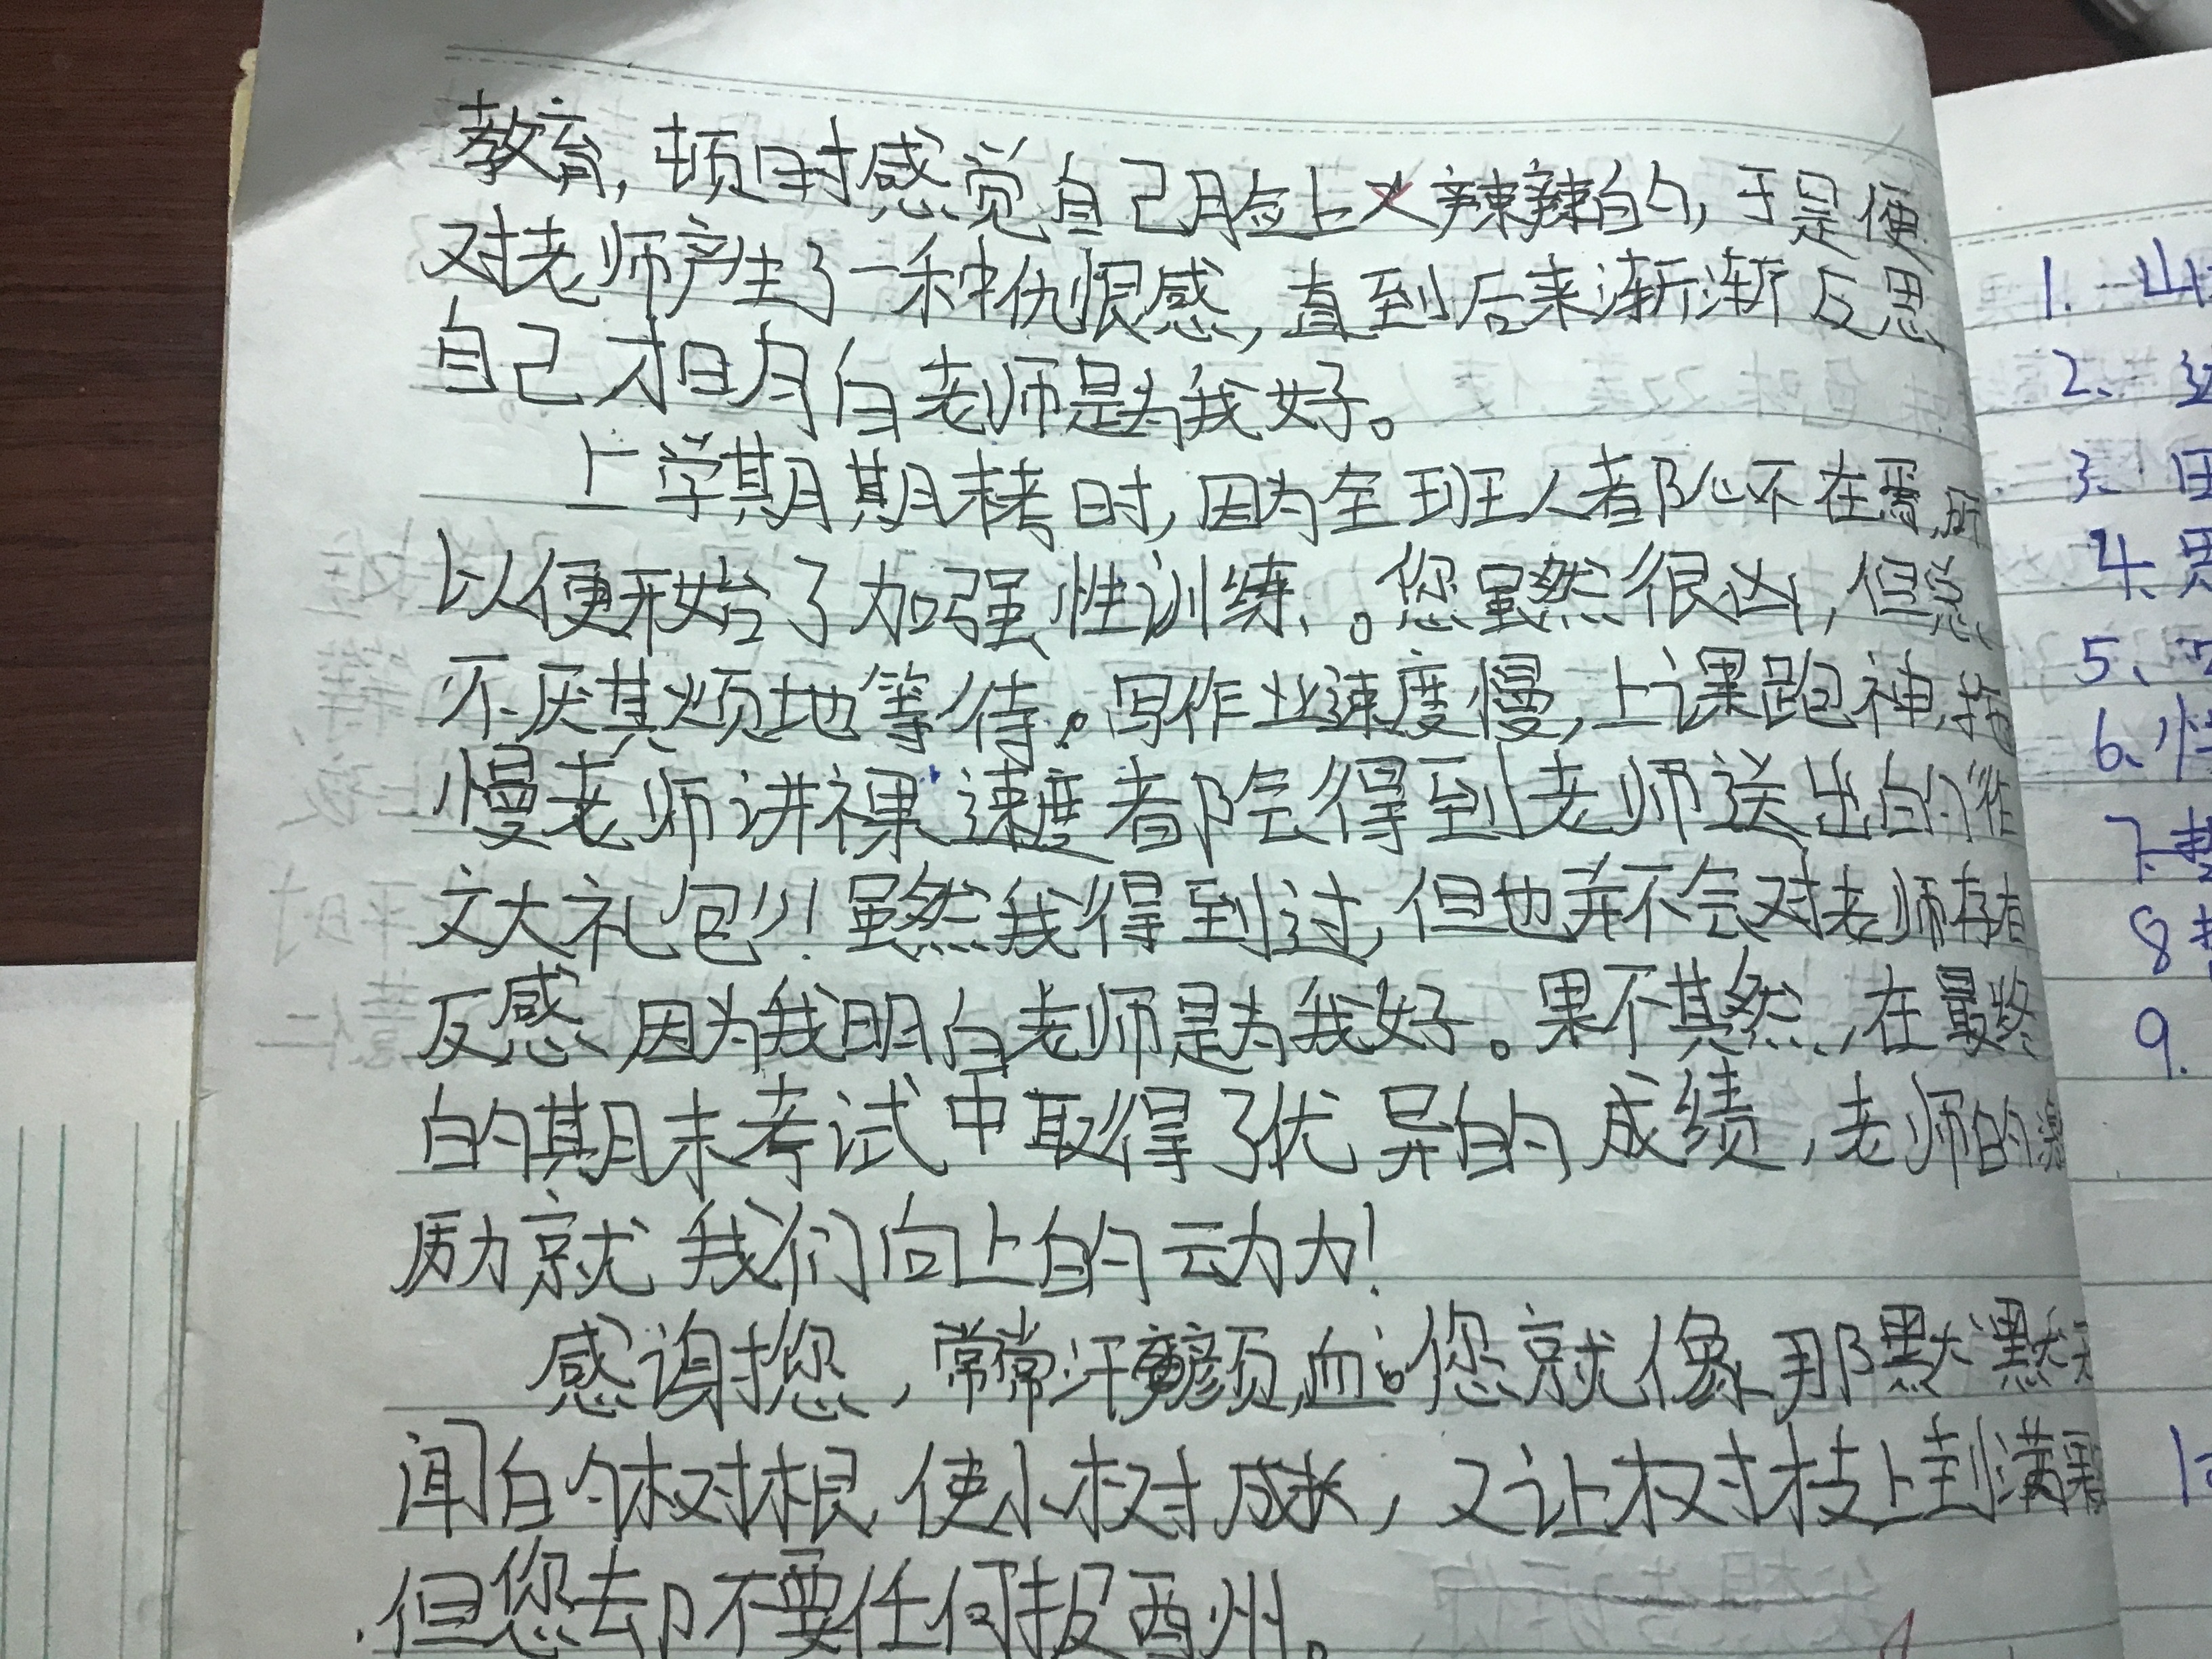 教育，顿时感觉自己脸上火辣辣的，于是便
对老师产生了一种仇恨感，直到后来渐渐反思
自己才明白老师是为我好。
上学期期末考时，因为全班人都心不在焉，所
以便开始了加强性训练。您虽然很凶，但总
不厌其烦地等待。写作业速度慢，上课跑神，拖
慢老师讲课速度都会得到老师送出的作
文大礼包!!虽然我得到过，但也并不会对老师存有
反感，因为我明白老师是为我好。果不其然，在最终
的期末考试中取得了优异的成绩，老师的
励就我们向上的动力!
感谢您，常常汗颜血。您就像那默默无
闻的树根，使小树成长，又让树枝上挂满果
但您却不要任何报酬。
1.一山
2、
3、
4、
5、
6、
7.
8
9.